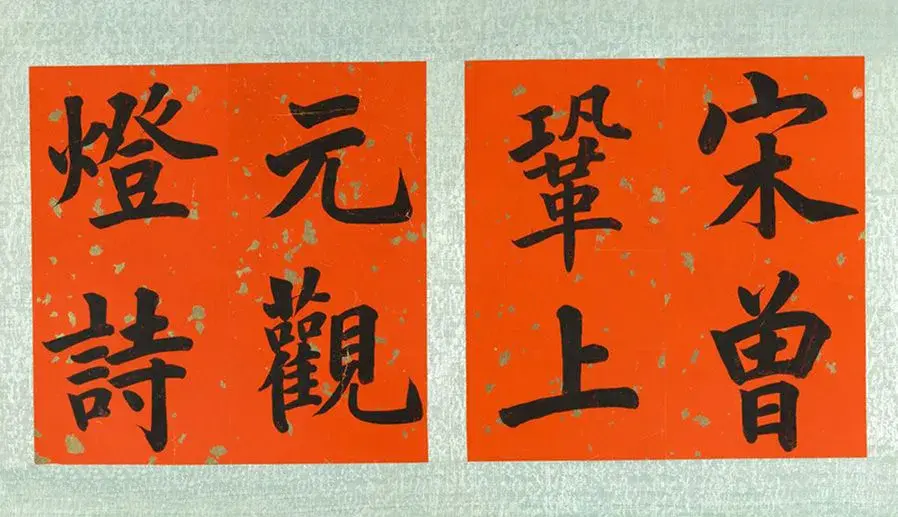 宋曾
鞏上
元觀
燈詩